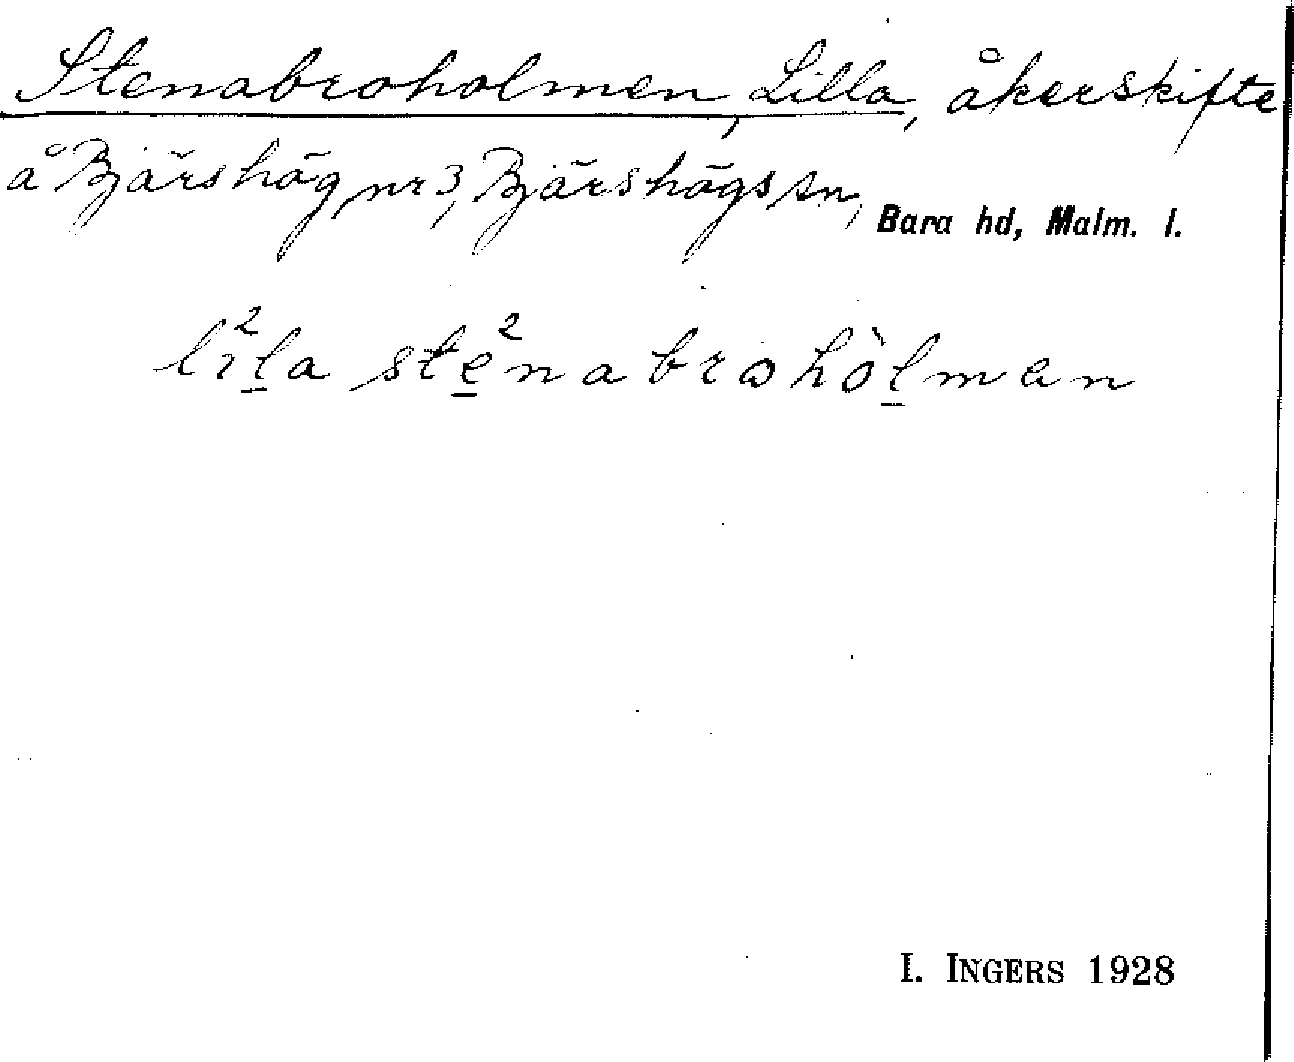 Stenabroholmen, Lilla, åkerskifte
å Bjärshög nr 3, Bjärshögs sn, Bara hd, Malm. l.
li²l̲a ste̲²nabrohòl̲man
I. INGERS 1928